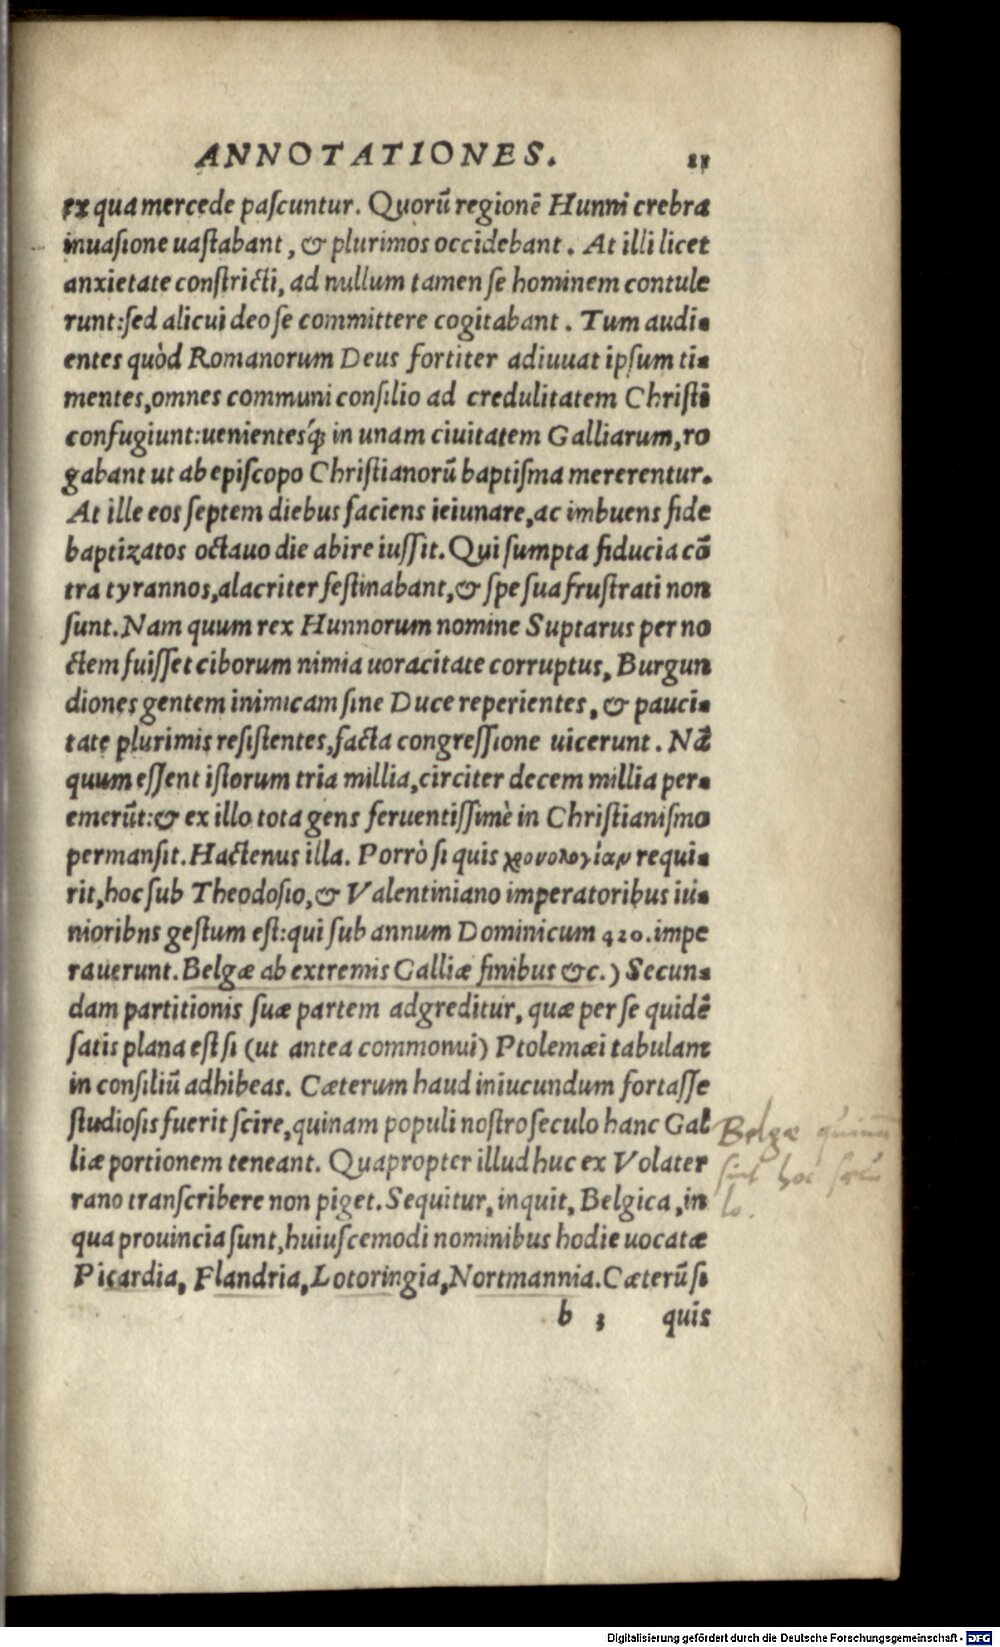 ANNOTATIONES. 21
ex qua mercede paſcuntur. Quorũ regionẽ Hunni crebra
inuaſione uaſtabant, & plurimos occidebant. At illi licet
anxietate conſtricti, ad nullum tamen ſe hominem contule
runt:ſed alicui deo ſe committere cogitabant. Tum audi-
entes quòd Romanorum Deus fortiter adiuuat ipſum ti-
mentes,omnes communi conſilio ad credulitatem Chriſti
confugiunt:uenientesq́; in unam ciuitatem Galliarum,ro
gabant ut ab epiſcopo Chriſtianorũ baptiſma mererentur.
At ille eos ſeptem diebus faciens ieiunare,ac imbuens fide
baptizatos octauo die abire iuſſit. Qui ſumpta fiducia cõ
tra tyrannos,alacriter feſtinabant,& ſpe ſua fruſtrati non
ſunt. Nam quum rex Hunnorum nomine Suptarus per no
ctem fuiſſet ciborum nimia uoracitate corruptus, Burgun
diones gentem inimicam ſine Duce reperientes, & pauci-
tate plurimis reſiſtentes,facta congreſſione uicerunt. Nã
quum eſſent iſtorum tria millia,circiter decem millia per-
emerũt:& ex illo tota gens feruentiſſimè in Chriſtianiſmo
permanſit. Hactenus illa. Porrò ſi quis χρονολογίαν requi-
rit,hoc ſub Theodoſio,& Valentiniano imperatoribus iu-
nioribns geſtum eſt:qui ſub annum Dominicum 420.impe
rauerunt. Belgæ ab extremis Galliæ finibus &c.) Secun-
dam partitionis ſuæ partem adgreditur, quæ per ſe quidẽ
ſatis plana eſt ſi (ut antea commonui) Ptolemæi tabulam
in conſiliũ adhibeas. Cæterum haud iniucundum fortaſſe
ſtudioſis fuerit ſcire,quinam populi noſtro ſeculo hanc Gal
liæ portionem teneant. Quapropter illud huc ex Volater
rano tranſcribere non piget. Sequitur, inquit, Belgica,in
qua prouincia ſunt,huiuſcemodi nominibus hodie uocatæ
Picardia, Flandria, Lotoringia,Nortmannia. Cæterũ ſi
b 3 quis
Belgæ quinam
sint hoc sæcu
lo.
Digitalisierung gefördert durch die Deutsche Forschungsgemeinschaft - DFG